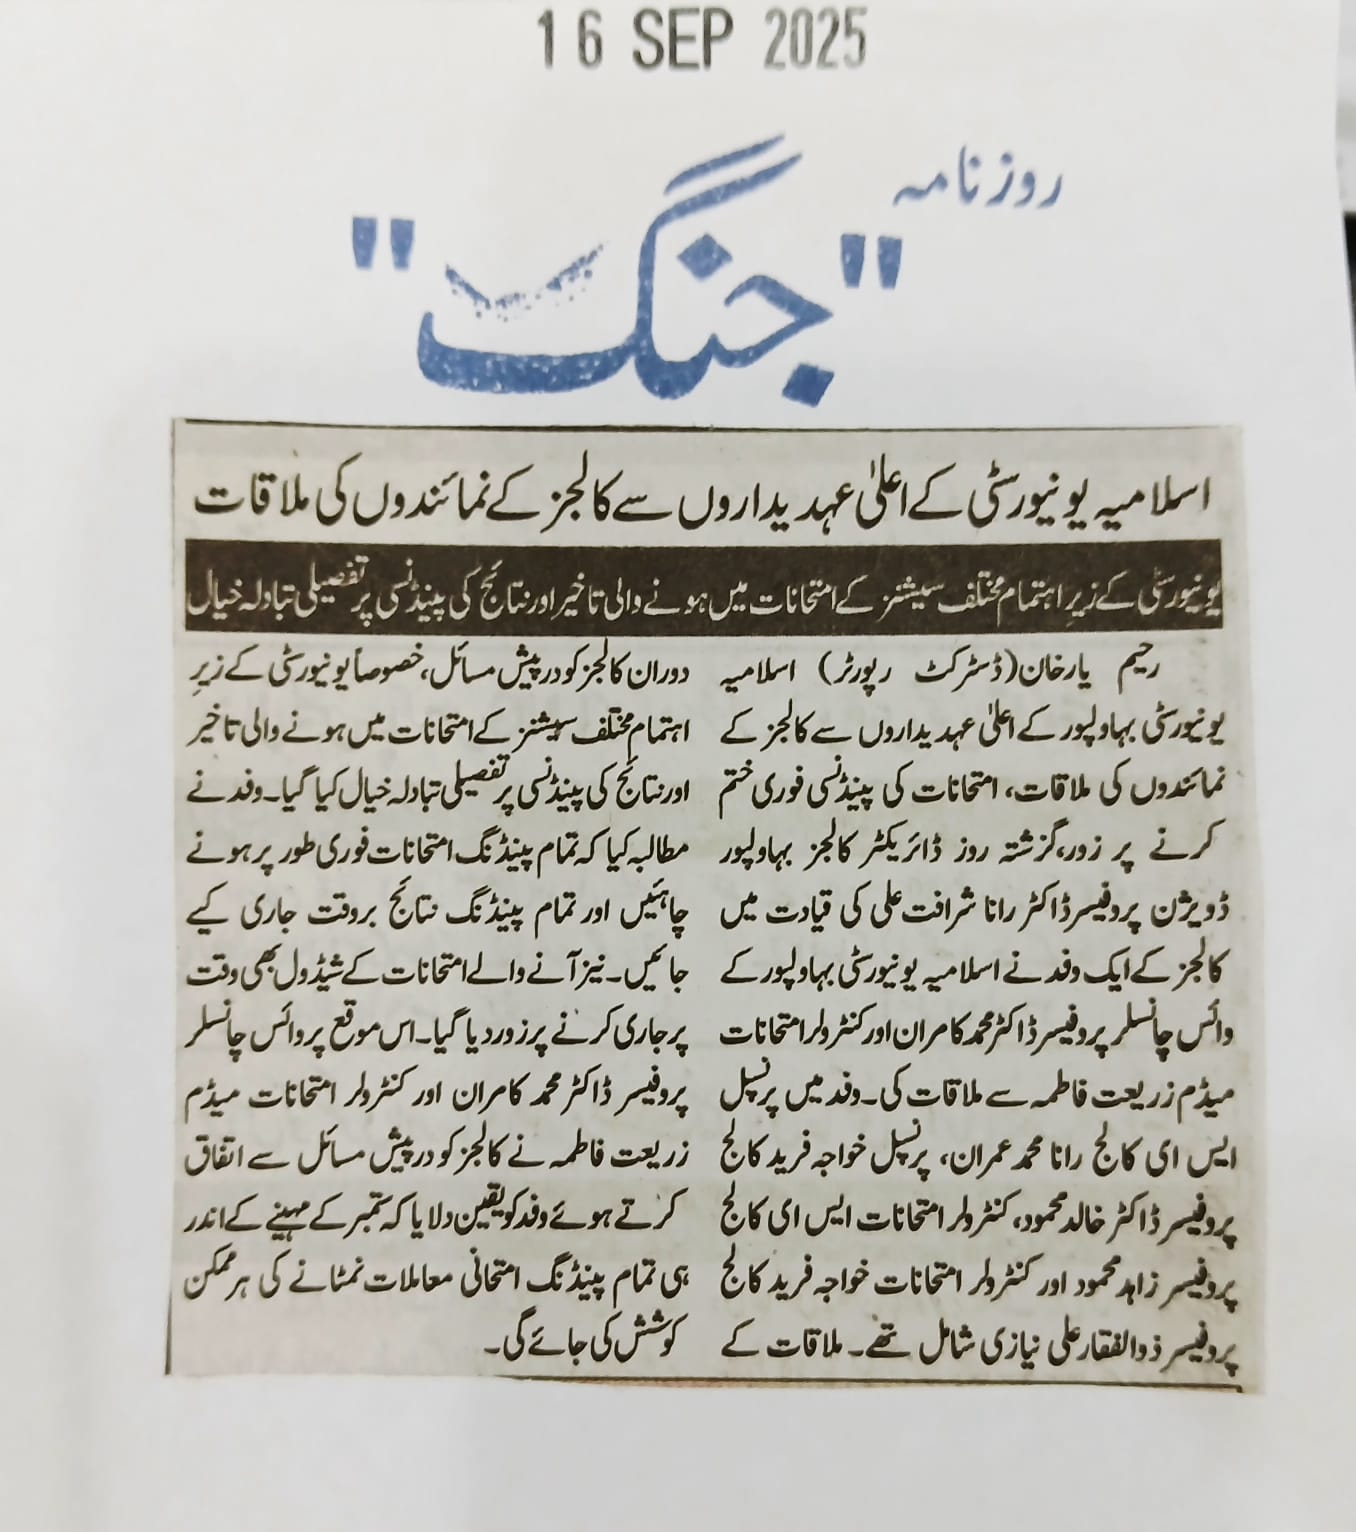 16 SEP 2025
روزنامہ
"جنگ"
اسلامیہ یونیورسٹی کے اعلیٰ عہدیداروں سے کالجز کے نمائندوں کی ملاقات
یونیورسٹی کے زیرِ اہتمام مختلف سیشنز کے امتحانات میں ہونے والی تاخیر اور نتائج کی پینڈنسی پر تفصیلی تبادلہ خیال
رحیم یار خان (ڈسٹرکٹ رپورٹر) اسلامیہ
یونیورسٹی بہاولپور کے اعلیٰ عہدیداروں سے کالجز کے
نمائندوں کی ملاقات، امتحانات کی پینڈنسی فوری ختم
کرنے پر زور، گزشتہ روز ڈائریکٹر کالجز بہاولپور
ڈویژن پروفیسر ڈاکٹر رانا شرافت علی کی قیادت میں
کالجز کے ایک وفد نے اسلامیہ یونیورسٹی بہاولپور کے
وائس چانسلر پروفیسر ڈاکٹر محمد کامران اور کنٹرولر امتحانات
میڈم زریعت فاطمہ سے ملاقات کی۔ وفد میں پرنسپل
ایس ای کالج رانا محمد عمران، پرنسپل خواجہ فرید کالج
پروفیسر ڈاکٹر خالد محمود، کنٹرولر امتحانات ایس ای کالج
پروفیسر زاہد محمود اور کنٹرولر امتحانات خواجہ فرید کالج
پروفیسر ذوالفقار علی نیازی شامل تھے۔ ملاقات کے
دوران کالجز کو درپیش مسائل، خصوصاً یونیورسٹی کے زیرِ
اہتمام مختلف سیشنز کے امتحانات میں ہونے والی تاخیر
اور نتائج کی پینڈنسی پر تفصیلی تبادلہ خیال کیا گیا۔ وفد نے
مطالبہ کیا کہ تمام پینڈنگ امتحانات فوری طور پر ہونے
چاہئیں اور تمام پینڈنگ نتائج بروقت جاری کیے
جائیں۔ نیز آنے والے امتحانات کے شیڈول بھی وقت
پر جاری کرنے پر زور دیا گیا۔ اس موقع پر وائس چانسلر
پروفیسر ڈاکٹر محمد کامران اور کنٹرولر امتحانات میڈم
زریعت فاطمہ نے کالجز کو درپیش مسائل سے اتفاق
کرتے ہوئے وفد کو یقین دلایا کہ ستمبر کے مہینے کے اندر
ہی تمام پینڈنگ امتحانی معاملات نمٹانے کی ہر ممکن
کوشش کی جائے گی۔